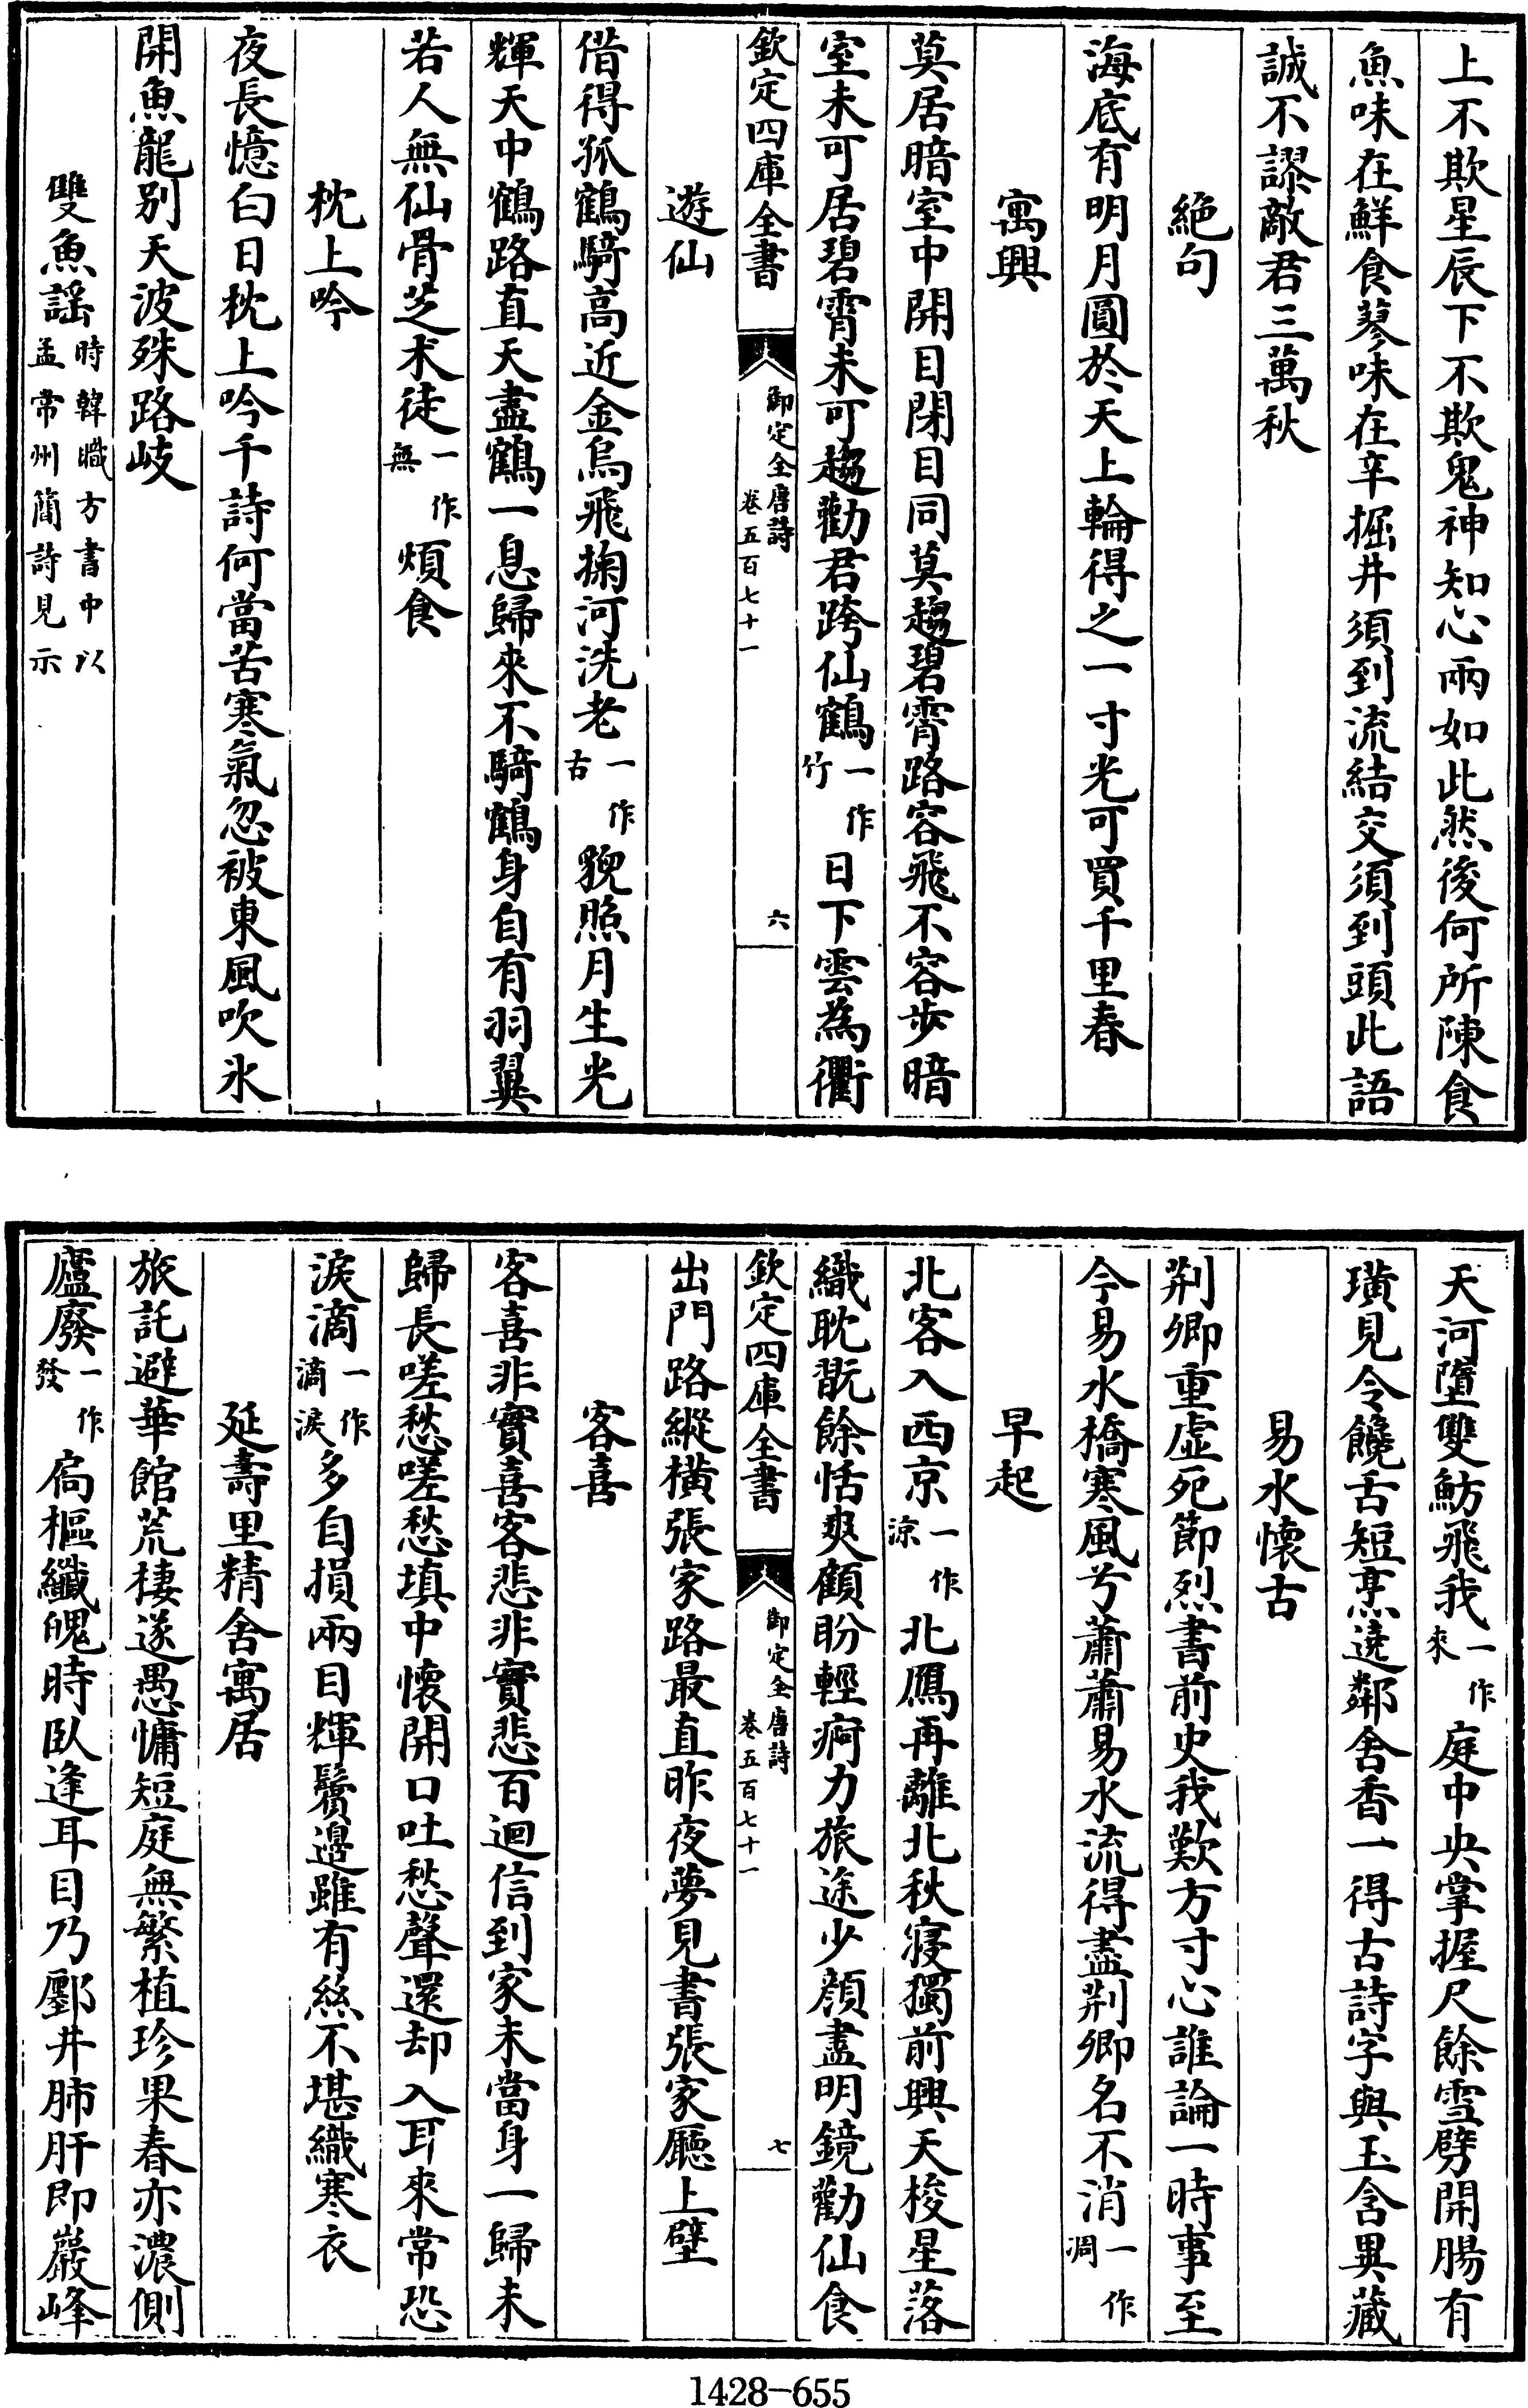 上不欺星辰下不欺鬼神知心兩如此然後何所陳食
魚味在鮮食蓼味在辛掘井須到流結交須到頭此語
誠不謬敵君三萬秋
絕句
海底有明月圓於天上輪得之一寸光可買千里春
寓興
莫居暗室中開目閉目同莫趨碧霄路容飛不容步暗
室未可居碧霄未可趨勸君跨仙鶴一作竹日下雲為衢
欽定四庫全書 御定全唐詩卷五百七十一 六
遊仙
借得孤鶴騎高近金烏飛掬河洗老一作古貌照月生光
輝天中鶴路直天盡鶴一息歸來不騎鶴身自有羽翼
若人無仙骨芝术徒一作無煩食
枕上吟
夜長憶白日枕上吟千詩何當苦寒氣忽被東風吹氷
開魚龍别天波殊路岐
雙魚謡時韓職方書中以孟常州簡詩見示
天河墮雙魴飛我一作來庭中央掌握尺餘雪劈開腸有
璜見令饞舌短烹遶鄰舍香一得古詩字與玉含異藏
易水懷古
荆卿重虚死節烈書前史我歎方寸心誰論一時事至
今易水橋寒風兮蕭蕭易水流得盡荆卿名不消一作凋
早起
北客入西京一作涼北鴈再離北秋寢獨前興天梭星落
織耽翫餘恬爽顧盼輕痾力旅途少顔盡明鏡勸仙食
欽定四庫全書 御定全唐詩卷五百七十一 七
出門路縱橫張家路最直昨夜夢見書張家廳上壁
客喜
客喜非實喜客悲非實悲百迴信到家未當身一歸未
歸長嗟愁嗟愁填中懷開口吐愁聲還却入耳來常恐
淚滴一作滴淚多自損兩目輝鬢邉雖有絲不堪織寒衣
延壽里精舍寓居
旅託避華館荒棲遂愚慵短庭無繁植珍果春亦濃側
廬廢一作發扃樞纖魄時臥逢耳目乃鄽井肺肝即巖峰
1428-655